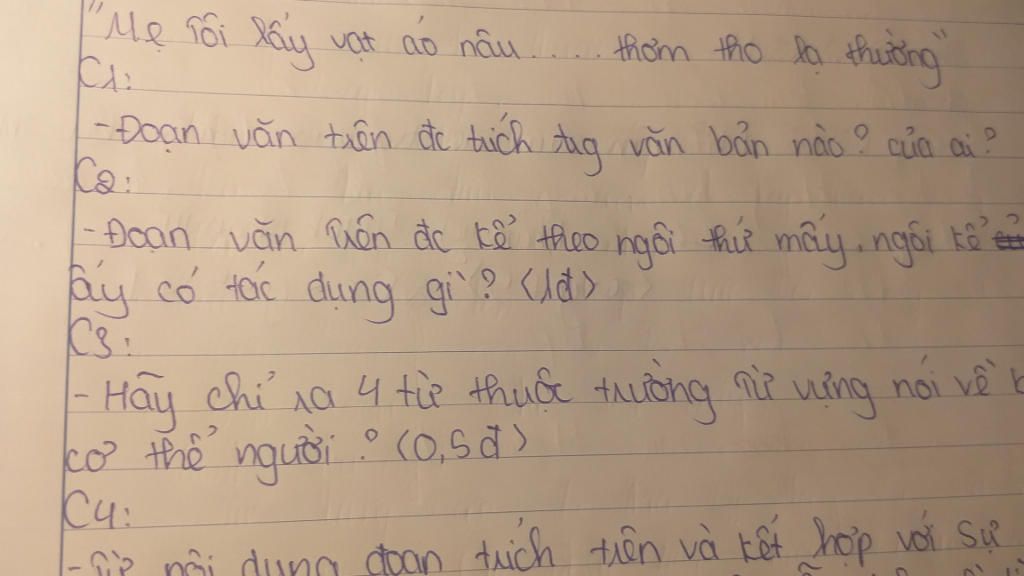 "Mẹ tôi lấy vạt áo nâu..... thơm tho lạ thường"
C1:
- Đoạn văn trên đc trích trg văn bản nào? của ai?
C2:
- Đoạn văn trên đc kể theo ngôi thứ mấy. ngôi kể
ấy có tác dụng gì? (1đ)
C3:
- Hãy chỉ ra 4 từ thuộc trường từ vựng nói về
cơ thể người? (0,5đ)
C4:
- Từ nội dung đoạn trích trên và kết hợp với sự